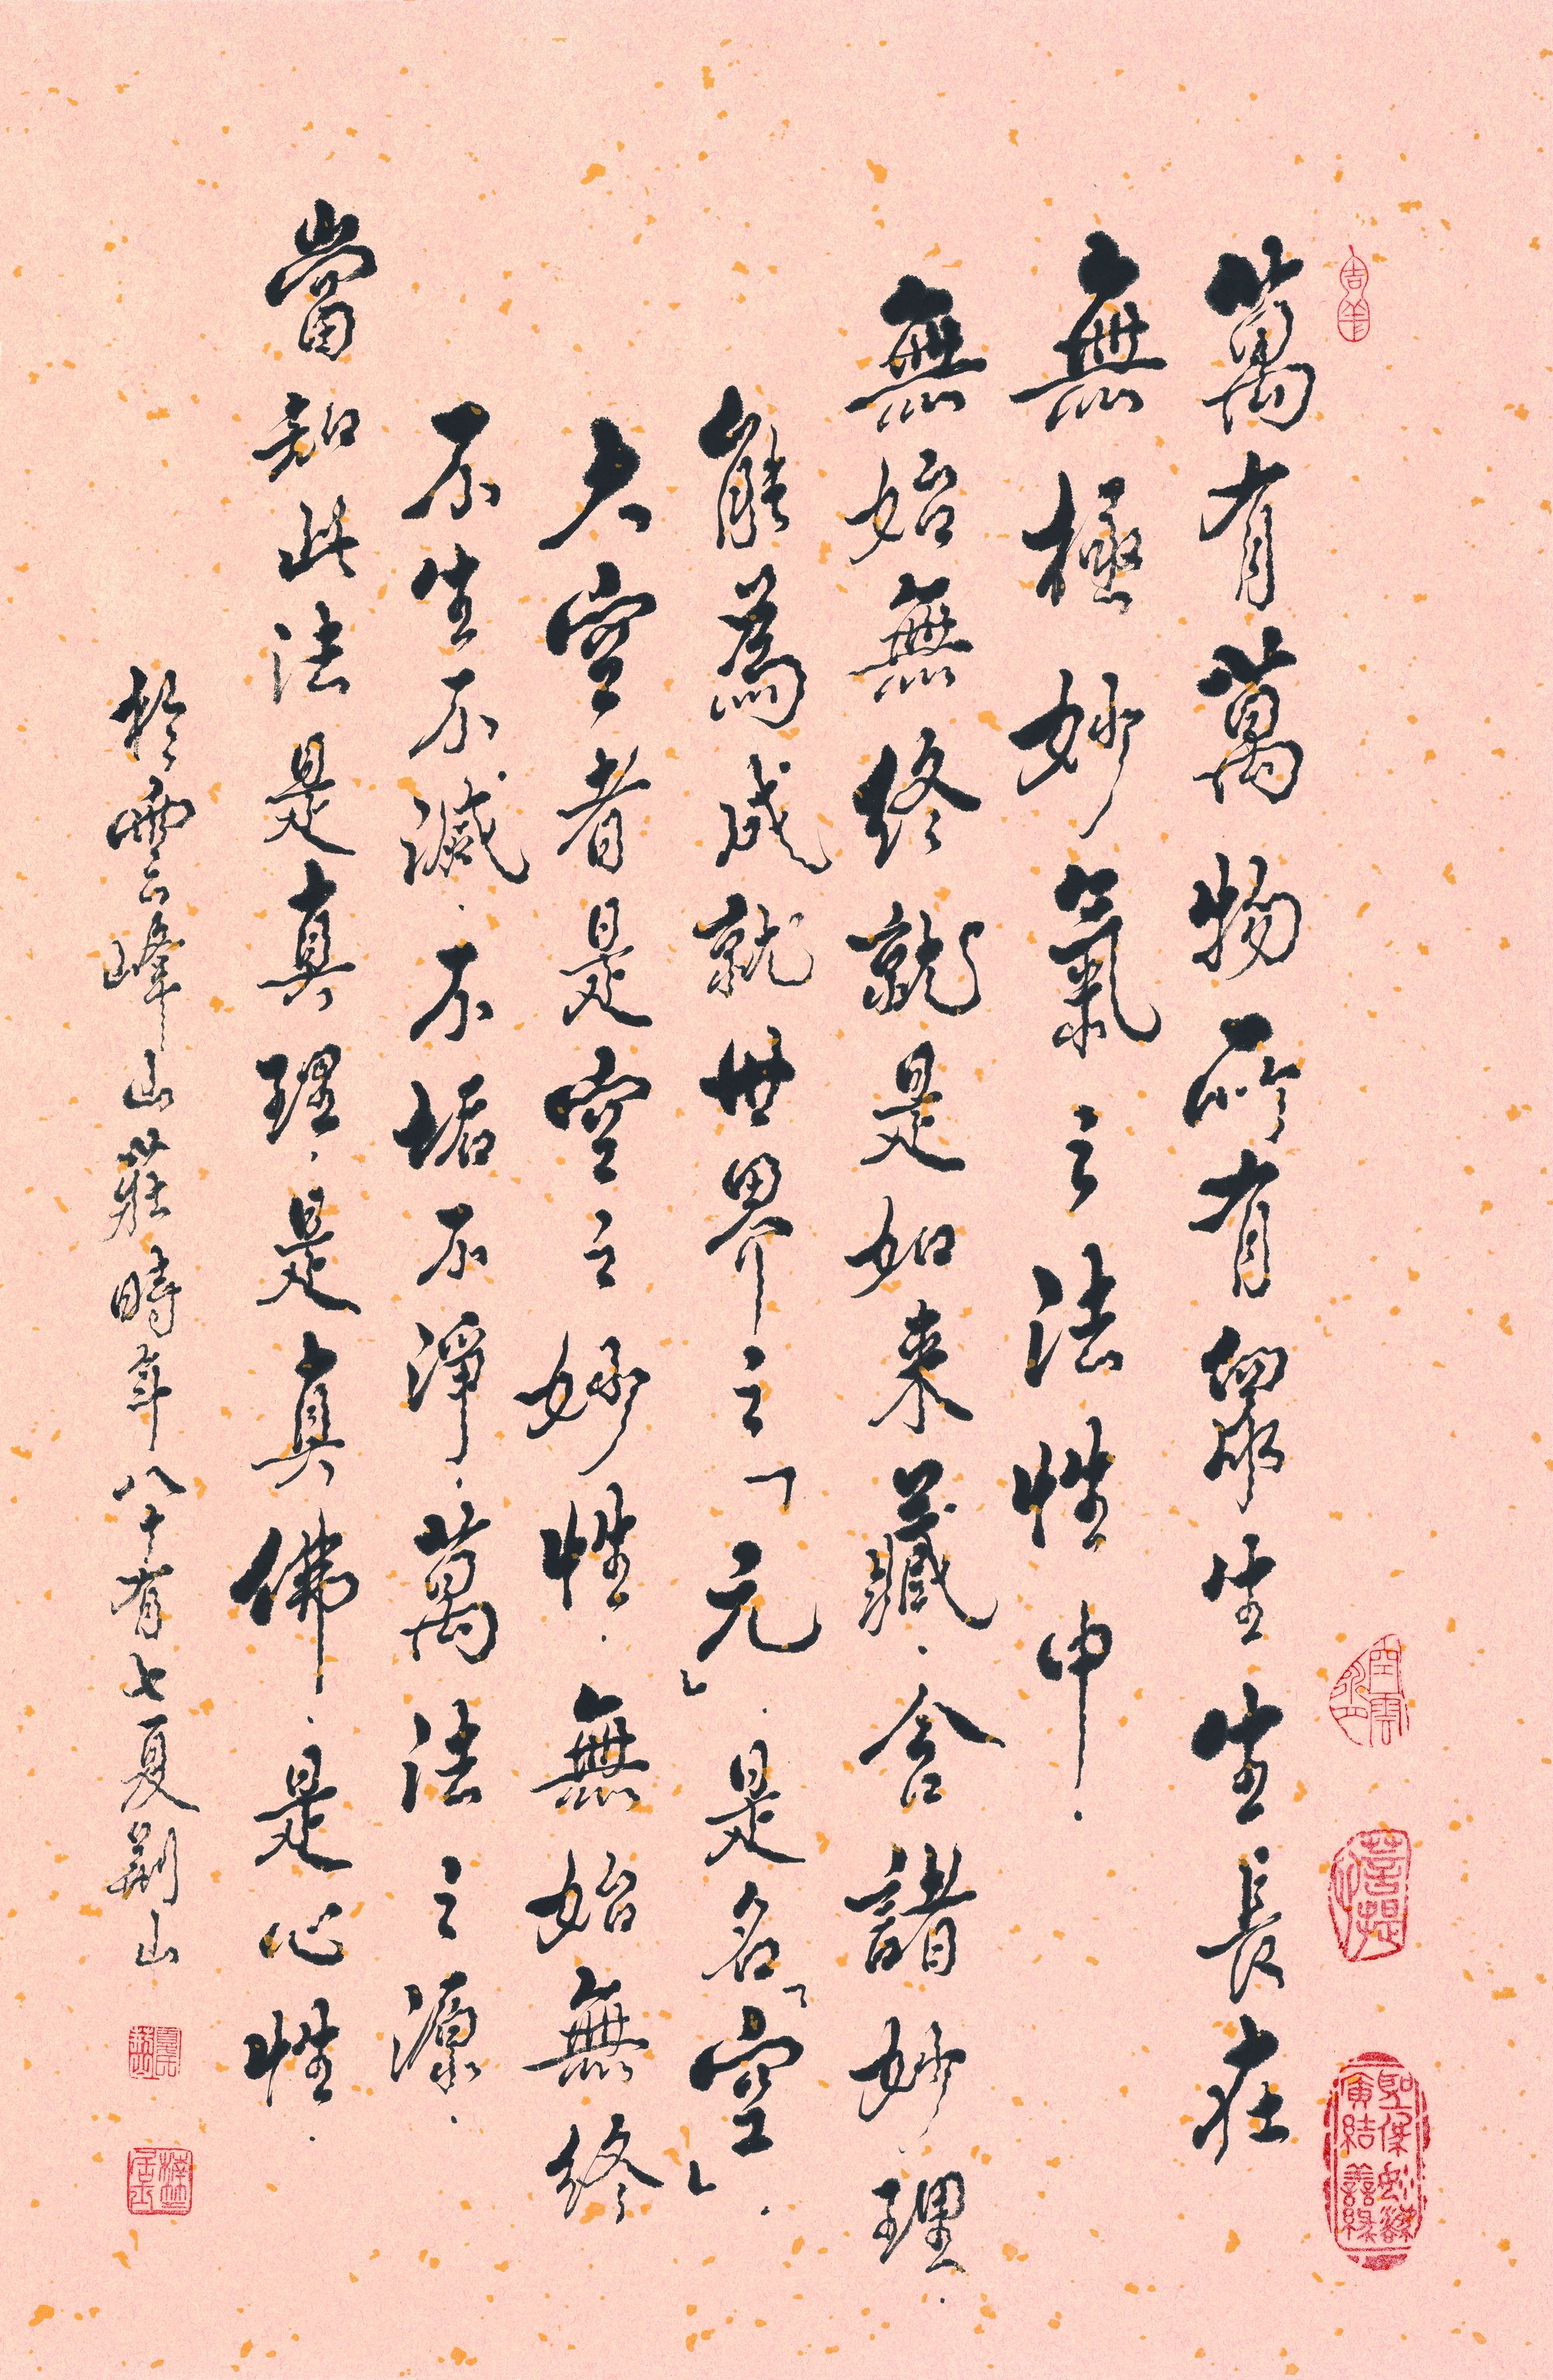 萬有萬物所有眾生生長在
無極妙氣之法性中.
無始無終就是如来藏.含諸妙理.
能為成就世界之「元」.是名「空」.
大空者是空之妙性.無始無終
不生不滅.不垢不淨.萬法之源.
當知此法是真理.是真佛.是心性.
於雲峰山莊時年八十有七夏荊山
吉羊
菩提
聖保妙諦
廣結善緣